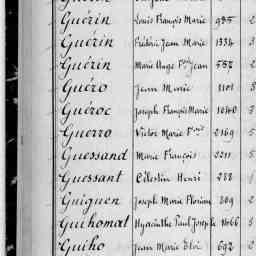 Guérin Louis François Marie 985 2
Guérin Frédéric Jean Marie 1334 3
Guérin Marie Ange Fçois Jean 552 2
Guéro Jean Marie 1101 3
Guéroc Joseph François Marie 1040 3
Guerro Victor Marie Fçois 2169 5
Guessand Marie François 2211 5
Guessant Célestin Henri 222
Guiguen Joseph Marie Florian 809 2
Guihomat Hyacinthe Paul Joseph 1066 3
Guiho Jean Marie Eloi 692 2